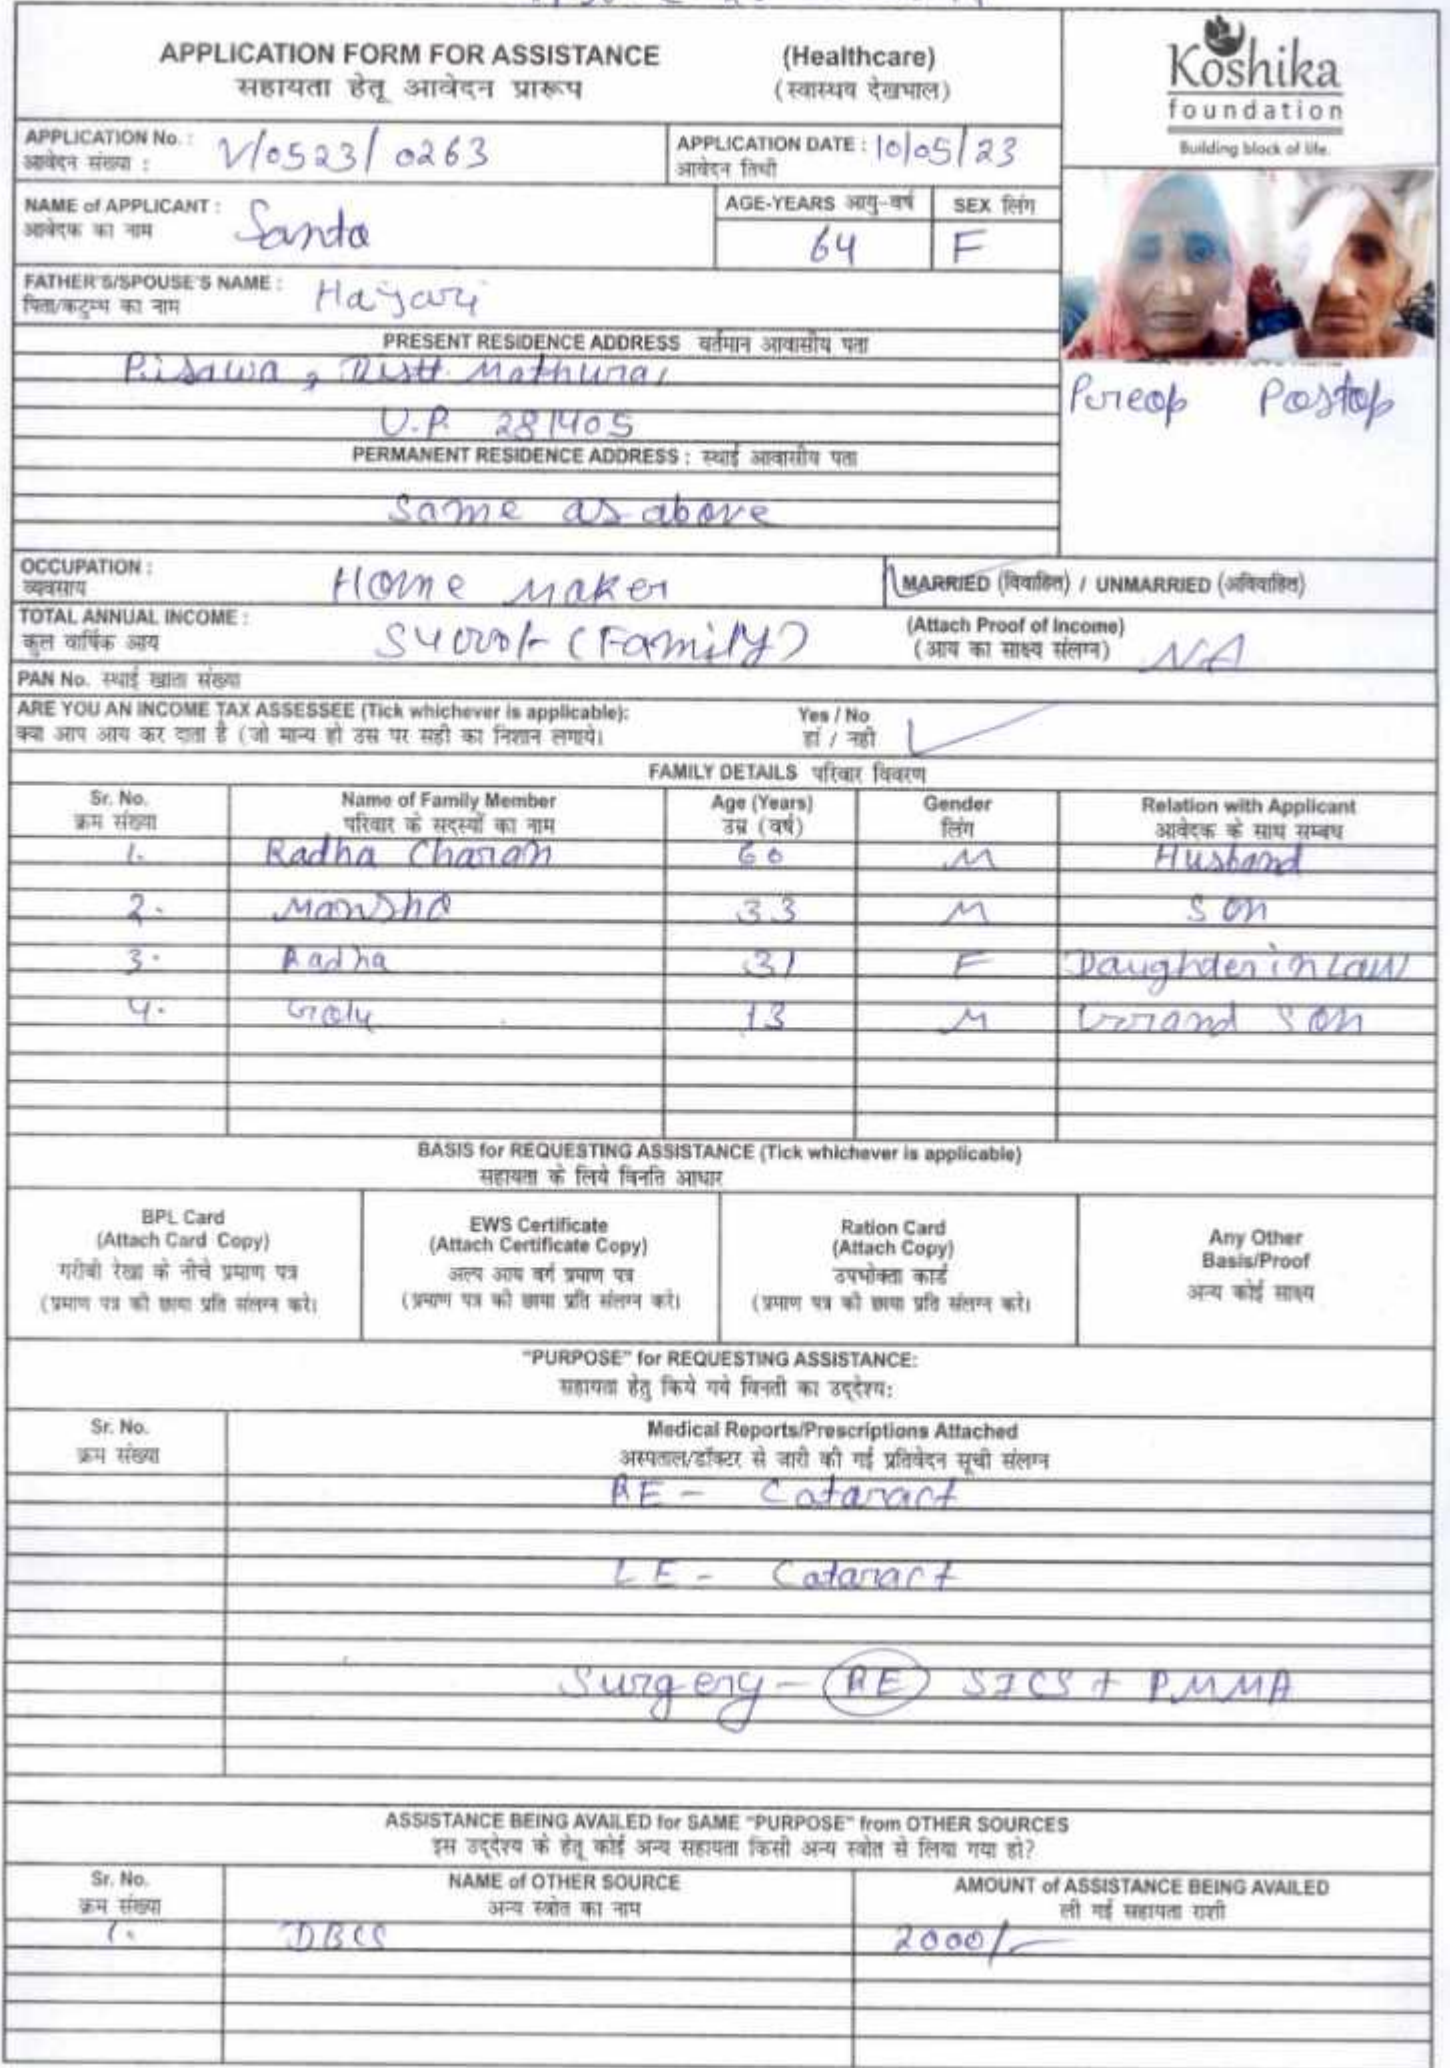 APPLICATION FORM FOR ASSISTANCE (Healthcare)
सहायता हेतू आवेदन प्रारूप (स्वास्थय देखभाल)
Koshika
foundation
Building block of life.
APPLICATION No. : V/0523/0263
आवेदन संख्या :
APPLICATION DATE : 10/05/23
आवेदन तिथी
NAME of APPLICANT : Santo
आवेदक का नाम
AGE-YEARS आयु-वर्ष 64
SEX लिंग F
FATHER'S/SPOUSE'S NAME :
पिता/कटुम्भ का नाम
Preop Postop
PRESENT RESIDENCE ADDRESS वर्तमान आवासीय पता
Pisawa, Distt. Mathura,
U.P. 281405
PERMANENT RESIDENCE ADDRESS : स्थाई आवासीय पता
Same as above
OCCUPATION : Home Maker
व्यवसाय
MARRIED (विवाहित) / UNMARRIED (अविवाहित)
TOTAL ANNUAL INCOME : (Family)
कुल वार्षिक आय
(Attach Proof of Income)
(आय का साक्ष्य संलग्न) NA
PAN No. स्थाई खाता संख्या
ARE YOU AN INCOME TAX ASSESSEE (Tick whichever is applicable): Yes / No
क्या आप आय कर दाता है (जो मान्य हो उस पर सही का निशान लगाये। हां / नही
FAMILY DETAILS परिवार विवरण
Sr. No. Name of Family Member Age (Years) Gender Relation with Applicant
क्रम संख्या परिवार के सदस्यों का नाम उम्र (वर्ष) लिंग आवेदक के साथ सम्बध
1. Radha Charan 60 M Husband
2. Mansha 33 M Son
3. Radha 31 F Daughter in Law
4. Golu 13 M Grand Son
BASIS for REQUESTING ASSISTANCE (Tick whichever is applicable)
सहायता के लिये विनति आधार
BPL Card
(Attach Card Copy)
गरीबी रेखा के नीचे प्रमाण पत्र
(प्रमाण पत्र की छाया प्रति संलग्न करे।
EWS Certificate
(Attach Certificate Copy)
अल्प आय वर्ग प्रमाण पत्र
(प्रमाण पत्र की छाया प्रति संलग्न करे।
Ration Card
(Attach Copy)
उपभोक्ता कार्ड
(प्रमाण पत्र की छाया प्रति संलग्न करे।
Any Other
Basis/Proof
अन्य कोई साक्ष्य
"PURPOSE" for REQUESTING ASSISTANCE:
सहायता हेतु किये गये विनती का उद्देश्य:
Sr. No. Medical Reports/Prescriptions Attached
क्रम संख्या अस्पताल/डॉक्टर से जारी की गई प्रतिवेदन सूची संलग्न
RE - Cataract
LE - Cataract
Surgery - RE SICS + PMMA
ASSISTANCE BEING AVAILED for SAME "PURPOSE" from OTHER SOURCES
इस उद्देश्य के हेतू कोई अन्य सहायता किसी अन्य स्त्रोत से लिया गया हो?
Sr. No. NAME of OTHER SOURCE AMOUNT of ASSISTANCE BEING AVAILED
क्रम संख्या अन्य स्त्रोत का नाम ली गई सहायता राशी
1. DBCS 2000/-